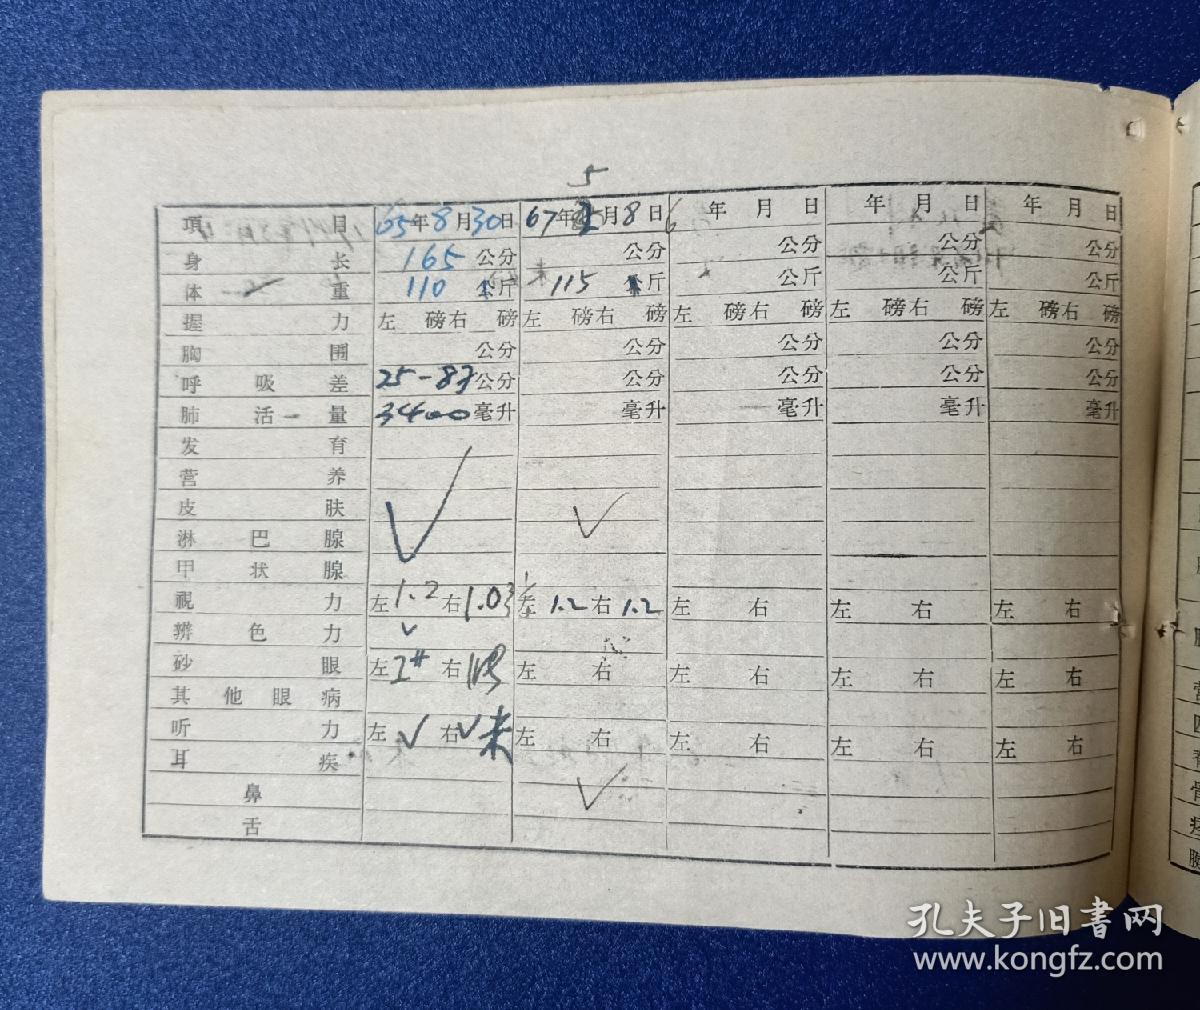 5
項目 65年8月30日 67年月8日 年月日 年月日 年月日
身长 165公分 公分 公分 公分 公分
体重 110斤 115斤 公斤 公斤 公斤
握力 左 磅右 磅 左 磅右 磅 左 磅右 磅 左 磅右 磅 左 磅右 磅
胸围 公分 公分 公分 公分 公分
呼吸差 公分 公分 公分 公分 公分
肺活量 3400毫升 毫升 毫升 毫升 毫升
发育
营养
皮肤 ✓
淋巴腺 ✓
甲状腺
視力 左1.2 右1.0 左1.2 右1.2 左 右 左 右 左 右
辨色力 ✓
砂眼 左 右 左 右 左 右 左 右 左 右
其他眼病
听力 左✓ 右✓ 左 右 左 右 左 右 左 右
耳疾
鼻 ✓
舌
孔夫子旧書网
www.kongfz.com